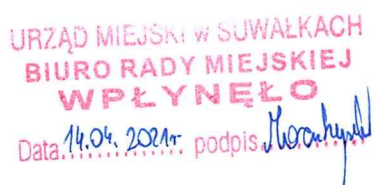 URZĄD MIEJSKI w SUWAŁKACH
BIURO RADY MIEJSKIEJ
WPŁYNĘŁO
Data 14.04. 2021r podpis